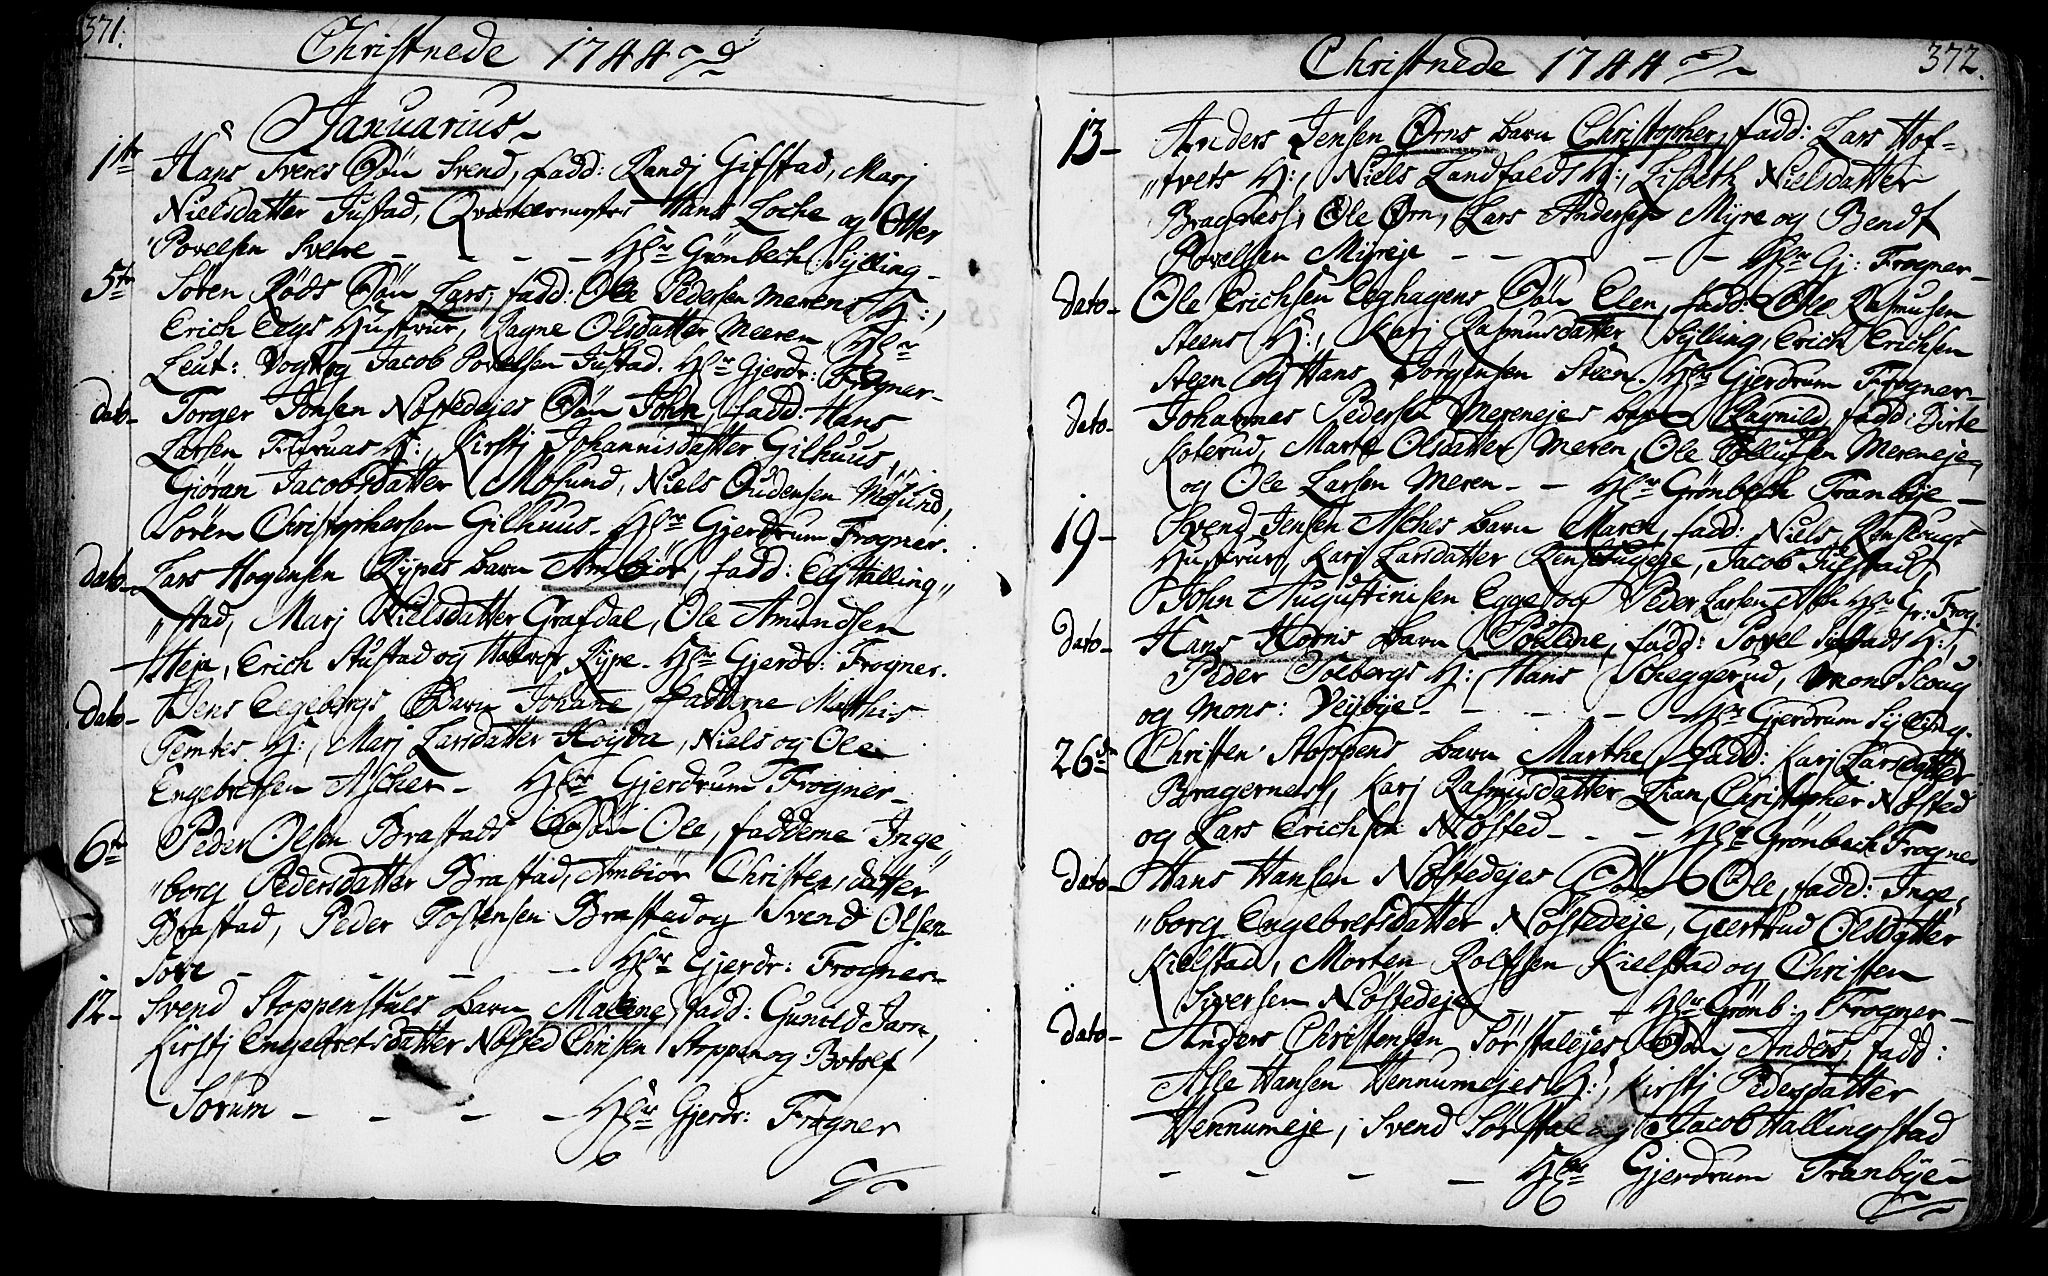 371.
Christnede 1744
Januarius
1te Hans Sveres Søn Svend, fadd: Randj Gifstad, Marj
Nielsdatter Justad, Qvarteermester Hans Loche og Otter
Povelsen Svere - - - - Hr: Grønbech: Sylling -
5te Søren Røds Søn Lars, fadd: Ole Pedersen Merens H:,
Erich Eegs Hustrue, Ragne Olsdatter Meeren, Hr
Leut: Vogt og Jacob Povelsen Justad. Hr Gjerdr: Frogner -
dato - Torger Jonsen Nøstedejes Søn John, fadd: Hans
Larsen Furuas H:, Kirstj Johannisdatter Gilhuus,
Giøran Jacobsdatter Møsund, Niels Oudensen Møsund,
Søren Christophersen Gilhuus - Hr: Gjerdrum Frogner.
dato - Lars Hogensen Rypes barn Ambiør, fadd: Eli Halling"
"stad, Marj Nielsdatter Grafdal, Ole Amundsen
Hejn, Erich Stustad og Halvor Rype - Hr Gjerdr: Frogner.
dato - Jens Eegebergs Barn Johane, fadderne Mathis
Temtes H:, Marj Larsdatter Høyda, Niels og Ole
Engebretsen Ascher - Hr Gjerdrum Frogner -
6te Peder Olsen Brastads Søn Ole, fadderne Inge"
"borg Pedersdatter Brastad, Ambiør Christensdatter
Brastad, Peder Tostensen Brastad og Svend Olsen
Sore - - - - Hr Gjerdr: Frogner -
12 - Svend Stoppenstuls barn Malene, fadd: Gunild Jarn,
Kirstj Engebretsdatter Nøsted Christen Stoppen og Botolf
Sørum - - - - Hr Gjerdr: Frogner

372.
Christnede 1744
13 - Anders Jensen Ørns barn Christopher, fadd: Lars Hof=
"tvets H:, Niels Landfalds H:, Lisbeth Nielsdatter
Bragness, Ole Ørn, Lars Andersen Myre og Bendt
Povelsen Myreje - - - - - Hr Gj: Frogner -
dato - Ole Erichsen Eeghagens Søn Elen, fadd: Ole Rasmusen
Steens H:, Karj Rasmusdatter Sylling, Erich Erichsen
Steen og Hans Jørgensen Steen. Hr Gjerdrum Frogner -
dato - Johannes Pedersen Merenejes barn Ragnild, fadd: Birte
Koterud, Marte Olsdatter Meren, Ole Pollufsen Mereneje,
og Ole Larsen Meren - - Hr Grønbech Tranbye -
19 - Svend Jensen Asches barn Maren, fadd: Niels Renschougs
Hustrue, Karj Larsdatter Renschugeje, Jacob Justad,
John Augustinisen Egge og Peder Larsen Ash Hr Gr: Frog.
dato - Hans Horns barn Pouline, fadd: Povel Solstads H:,
Peder Solbergs H:, Hans Scheggerud, Mons Scoug
og Mons: Vejbye - - - - - Hr Gjerdrum Sylling.
26de Christen Stoppens barn Marthe, fadd: Karj Larsdatter
Bragerness, Karj Rasmusdatter Lian, Christopher Nøsted
og Lars Erichsen Nøsted - - - Hr Grønbech Frogner
dato - Hans Hansen Nøstedejes Søn Ole, fadd: Inge"
"borg Engebretsdatter Nøstedeje, Geertrud Olsdatter
Kielstad, Morten Rolfsen Kielstad og Christen
Siversen Nøstedeje - - Hr Grønb: Frogner -
dato - Anders Christensen Sørstalejes Søn Anders, fadd:
Asle Hansen Hennumejes H:, Kirstj Pedersdatter
Hennumeje, Svend Sørstal og Jacob Hallingstad
- - - - - Hr Gjerdrum Tranbye -